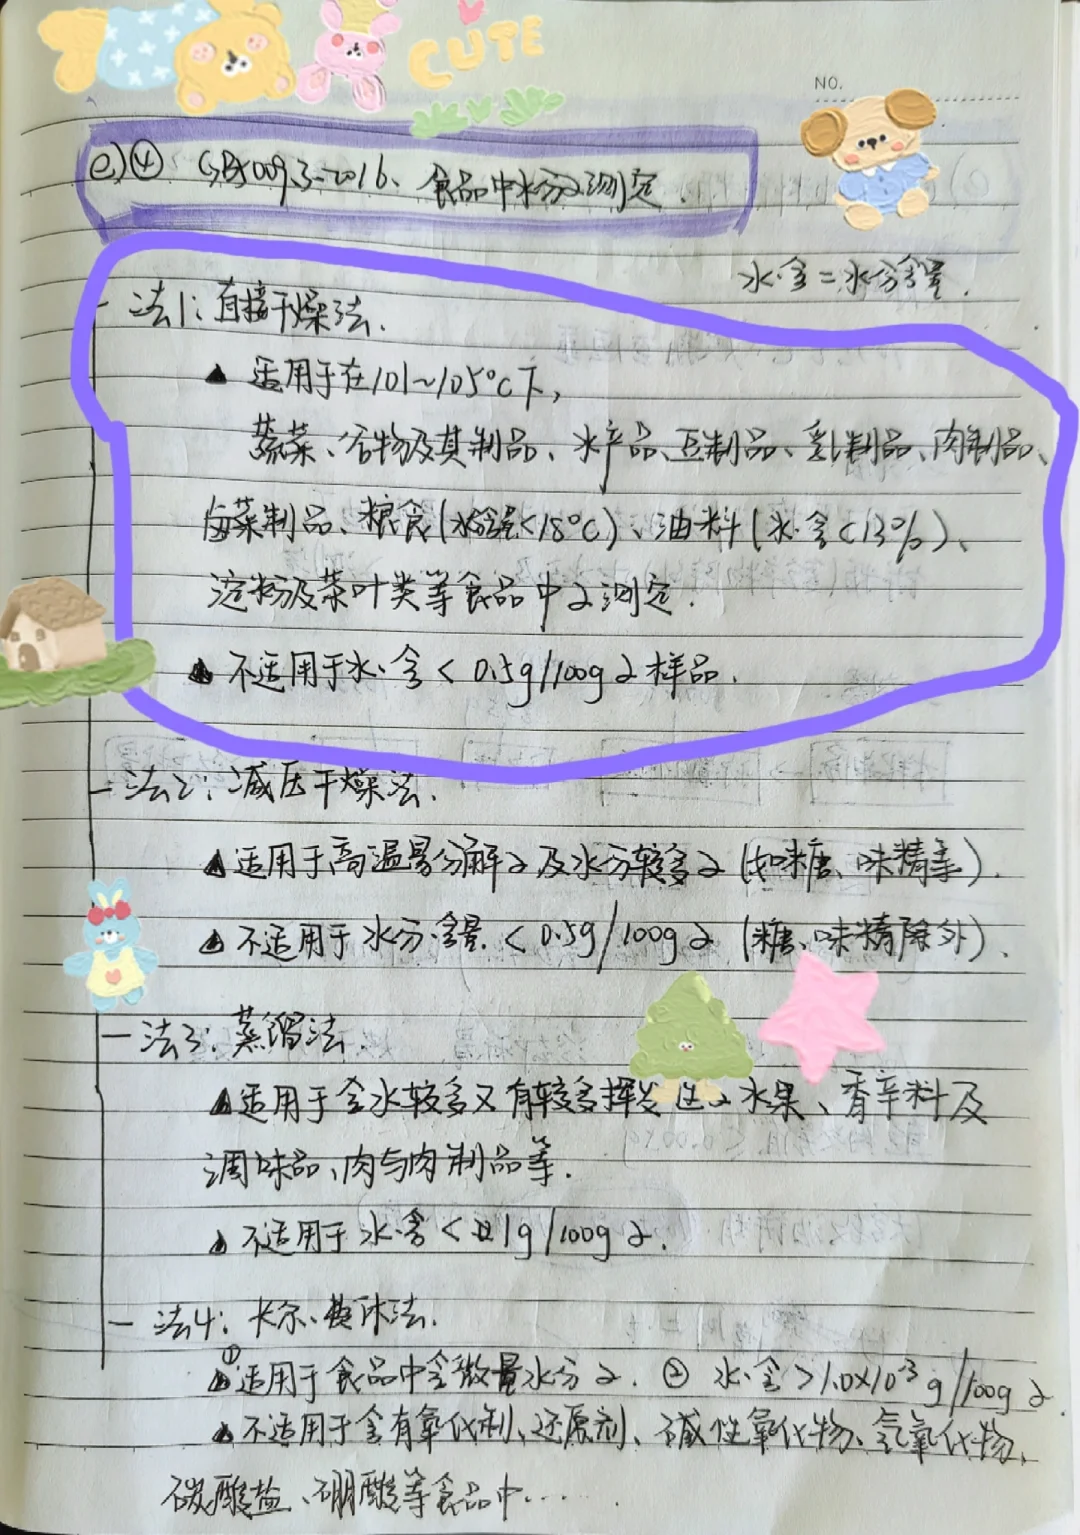 CUTE
NO.
e)④ GB5009.3-2016、食品中水分之测定.
水·含=水分含量.
法1:直接干燥法.
▲ 适用于在101~105°C下,
蔬菜、谷物及其制品、水产品、豆制品、乳制品、肉制品、
卤菜制品、粮食(水含量<18°C)、油料(水·含<13%)、
淀粉及茶叶类等食品中之测定.
▲ 不适用于水·含<0.5g/100g之样品.
法2:减压干燥法.
▲适用于高温易分解之及水分较多之(如糖、味精等).
▲ 不适用于水分·含量.<0.5g/100g之(糖、味精除外).
法3:蒸馏法.
▲适用于含水较多又有较多挥发 之水果、香辛料及
调味品、肉与肉制品等.
▲ 不适用于水·含<1g/100g之.
法4:卡尔·费休法.
▲①适用于食品中含微量水分之. ② 水·含>1.0×10⁻³g/100g之.
▲ 不适用于含有氧化剂、还原剂、碱性氧化物、氢氧化物、
碳酸盐、硼酸等食品中......